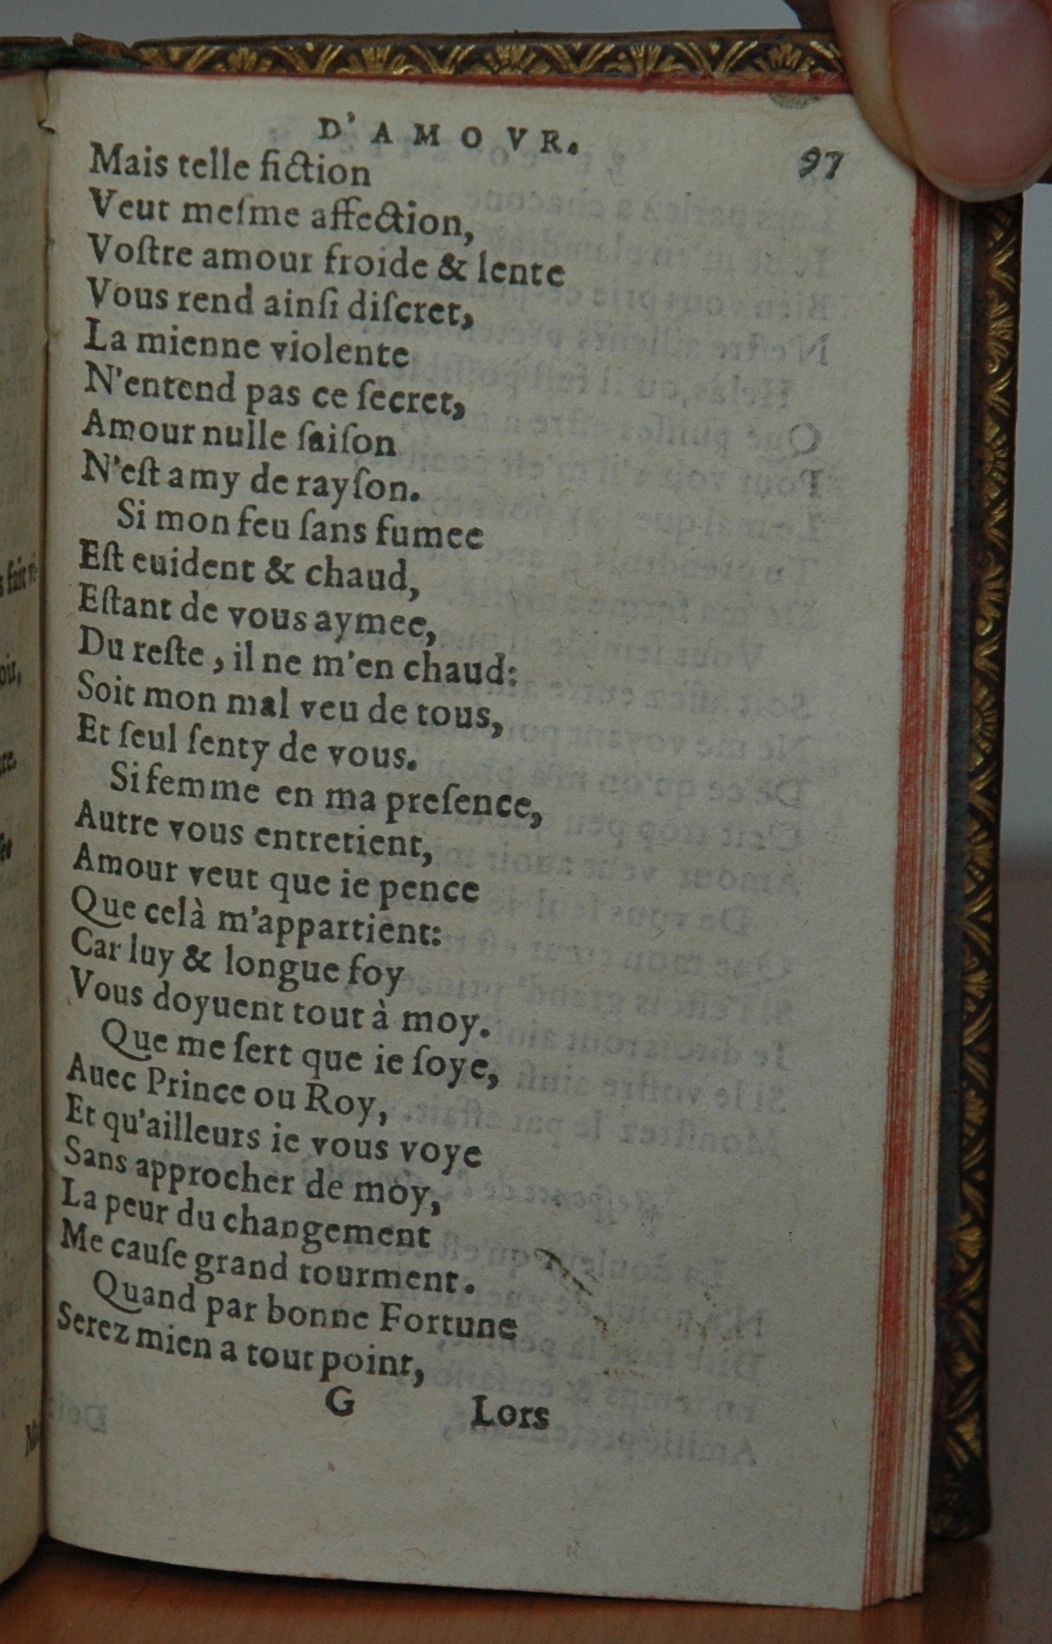 D'AMOVR.
97
Mais telle fiction
Veut meſme affection,
Voſtre amour froide & lente
Vous rend ainſi diſcret,
La mienne violente
N'entend pas ce ſecret,
Amour nulle ſaiſon
N'eſt amy de rayſon.
Si mon feu ſans fumee
Eſt euident & chaud,
Eſtant de vous aymee,
Du reſte, il ne m'en chaud:
Soit mon mal veu de tous,
Et ſeul ſenty de vous.
Si femme en ma preſence,
Autre vous entretient,
Amour veut que ie pence
Que celà m'appartient:
Car luy & longue foy
Vous doyuent tout à moy.
Que me ſert que ie ſoye,
Auec Prince ou Roy,
Et qu'ailleurs ie vous voye
Sans approcher de moy,
La peur du changement
Me cauſe grand tourment.
Quand par bonne Fortune
Serez mien a tout point,
G Lors